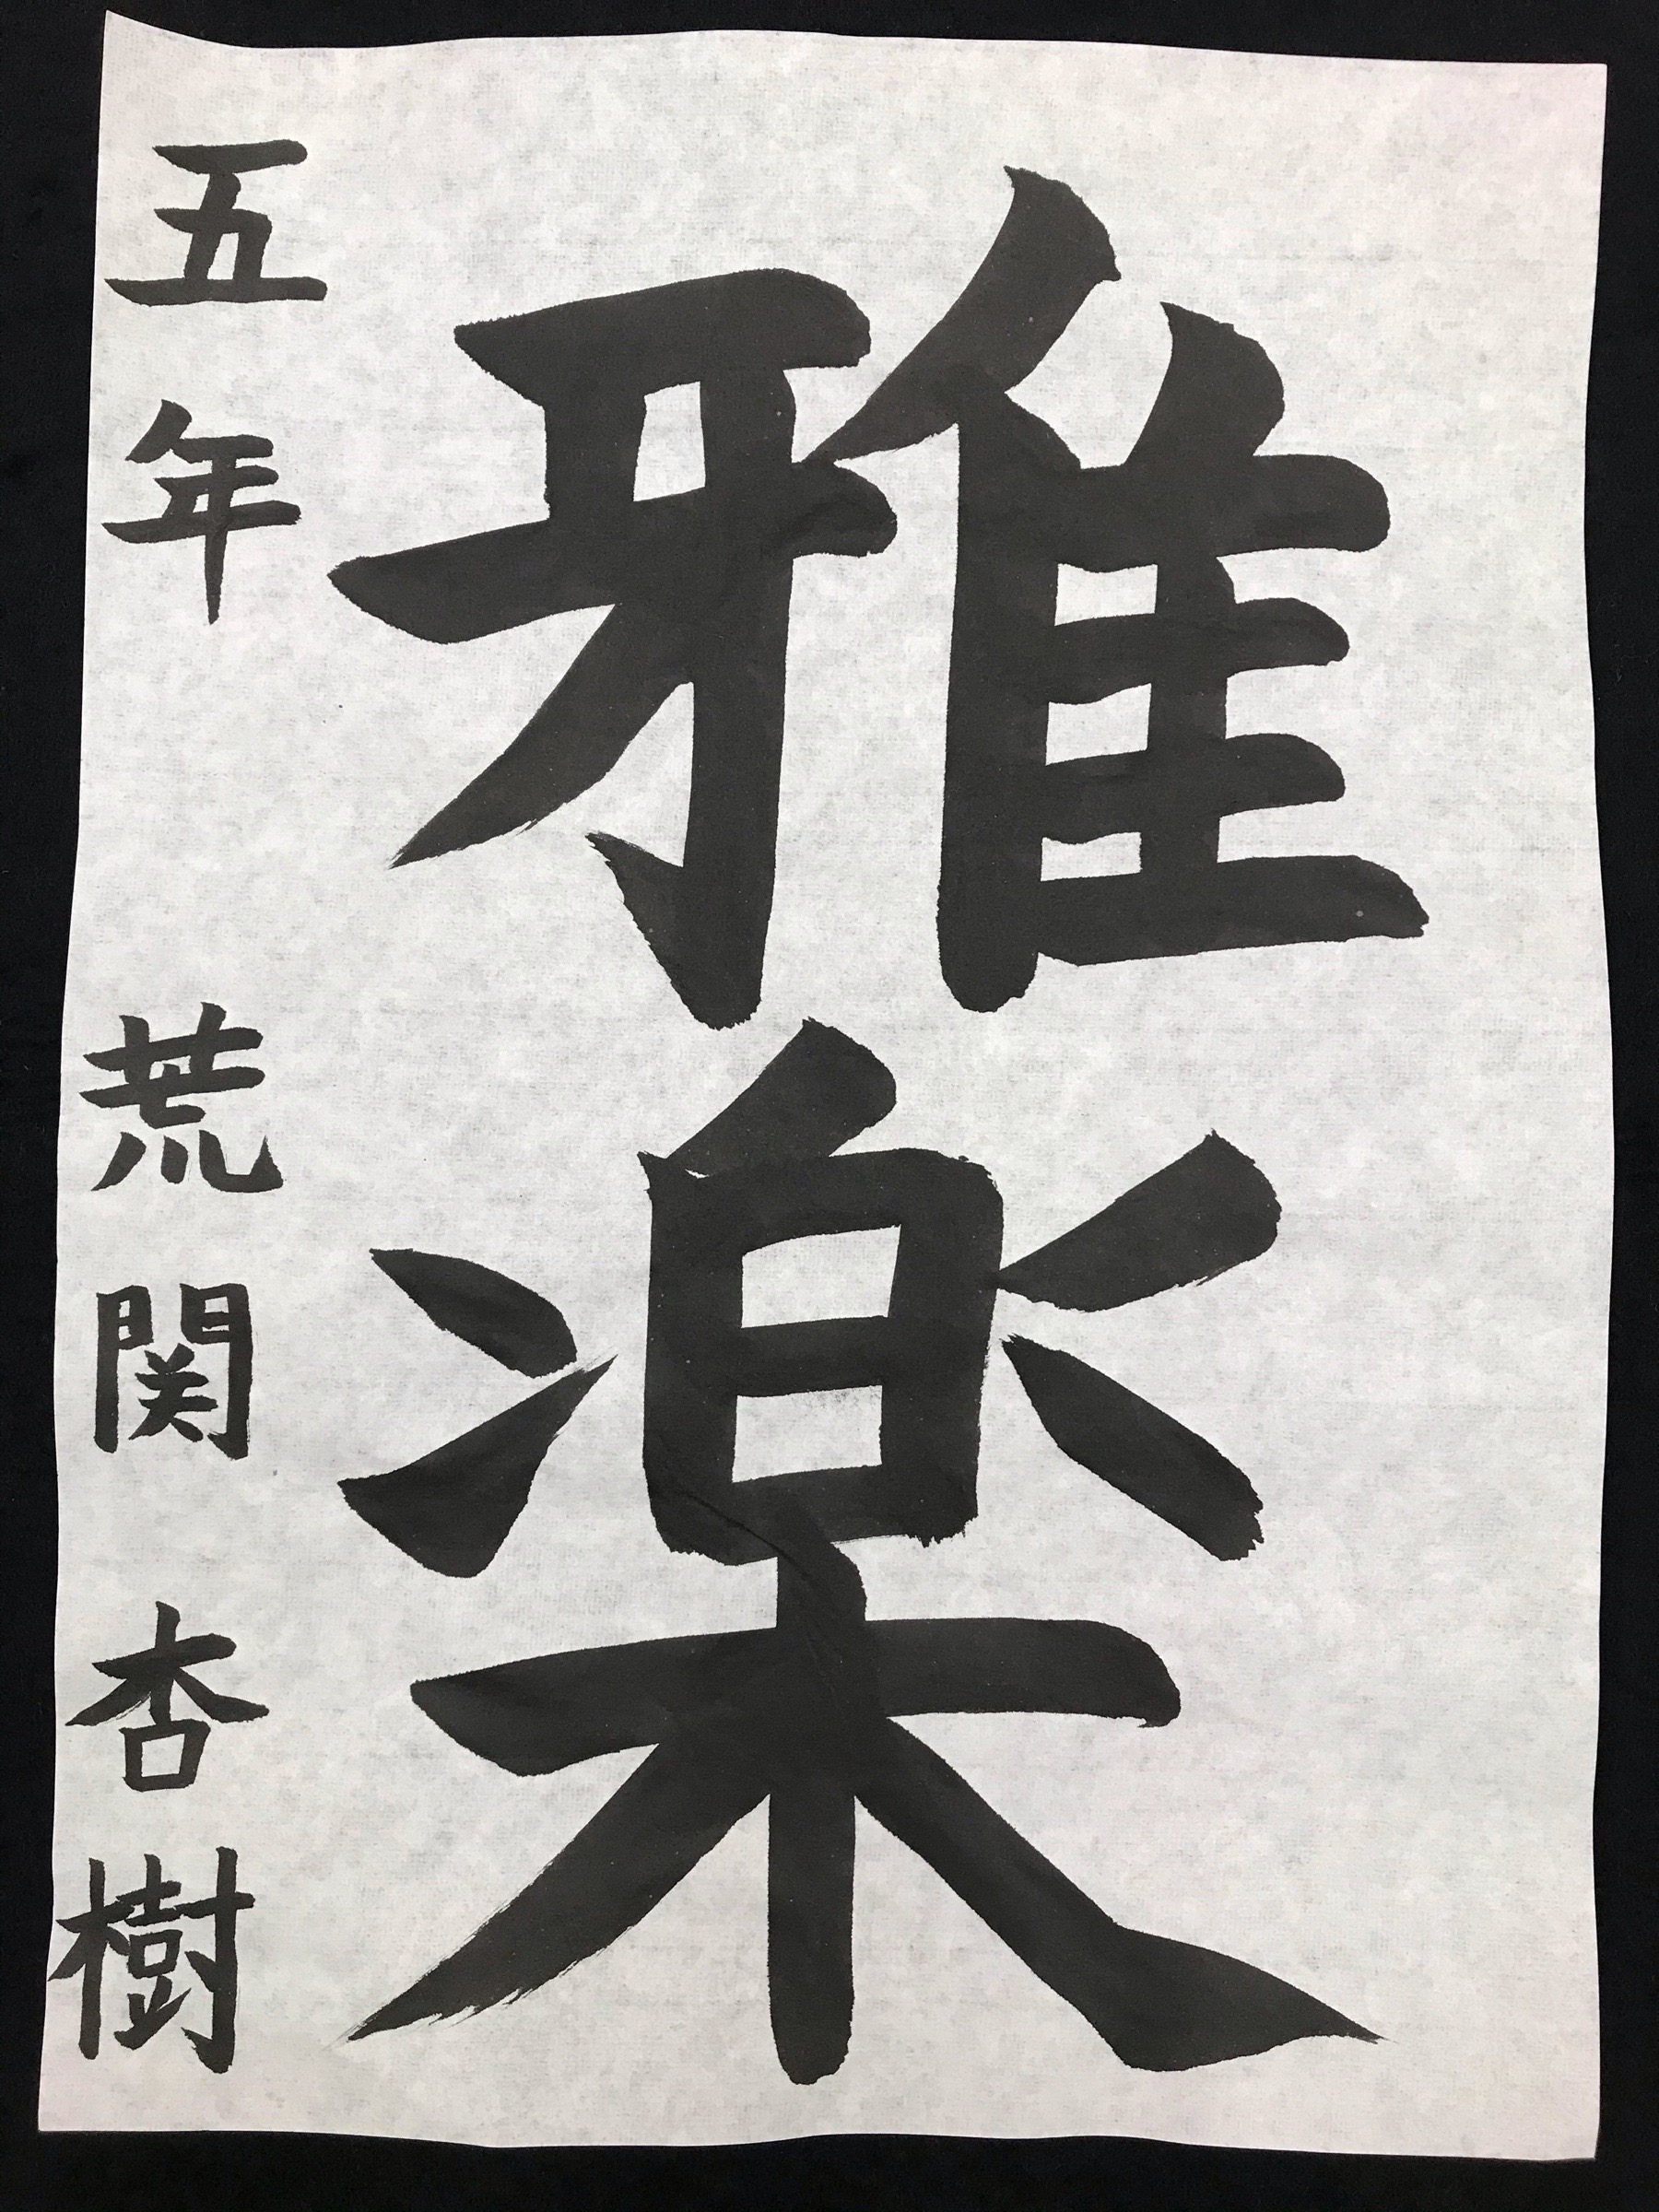 雅楽
五年 荒関杏樹